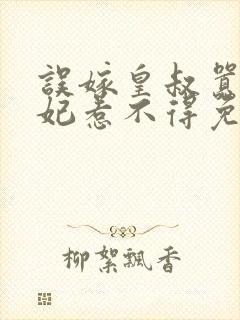 誤嫁皇叔囂
妃惹不得免
柳絮飄香